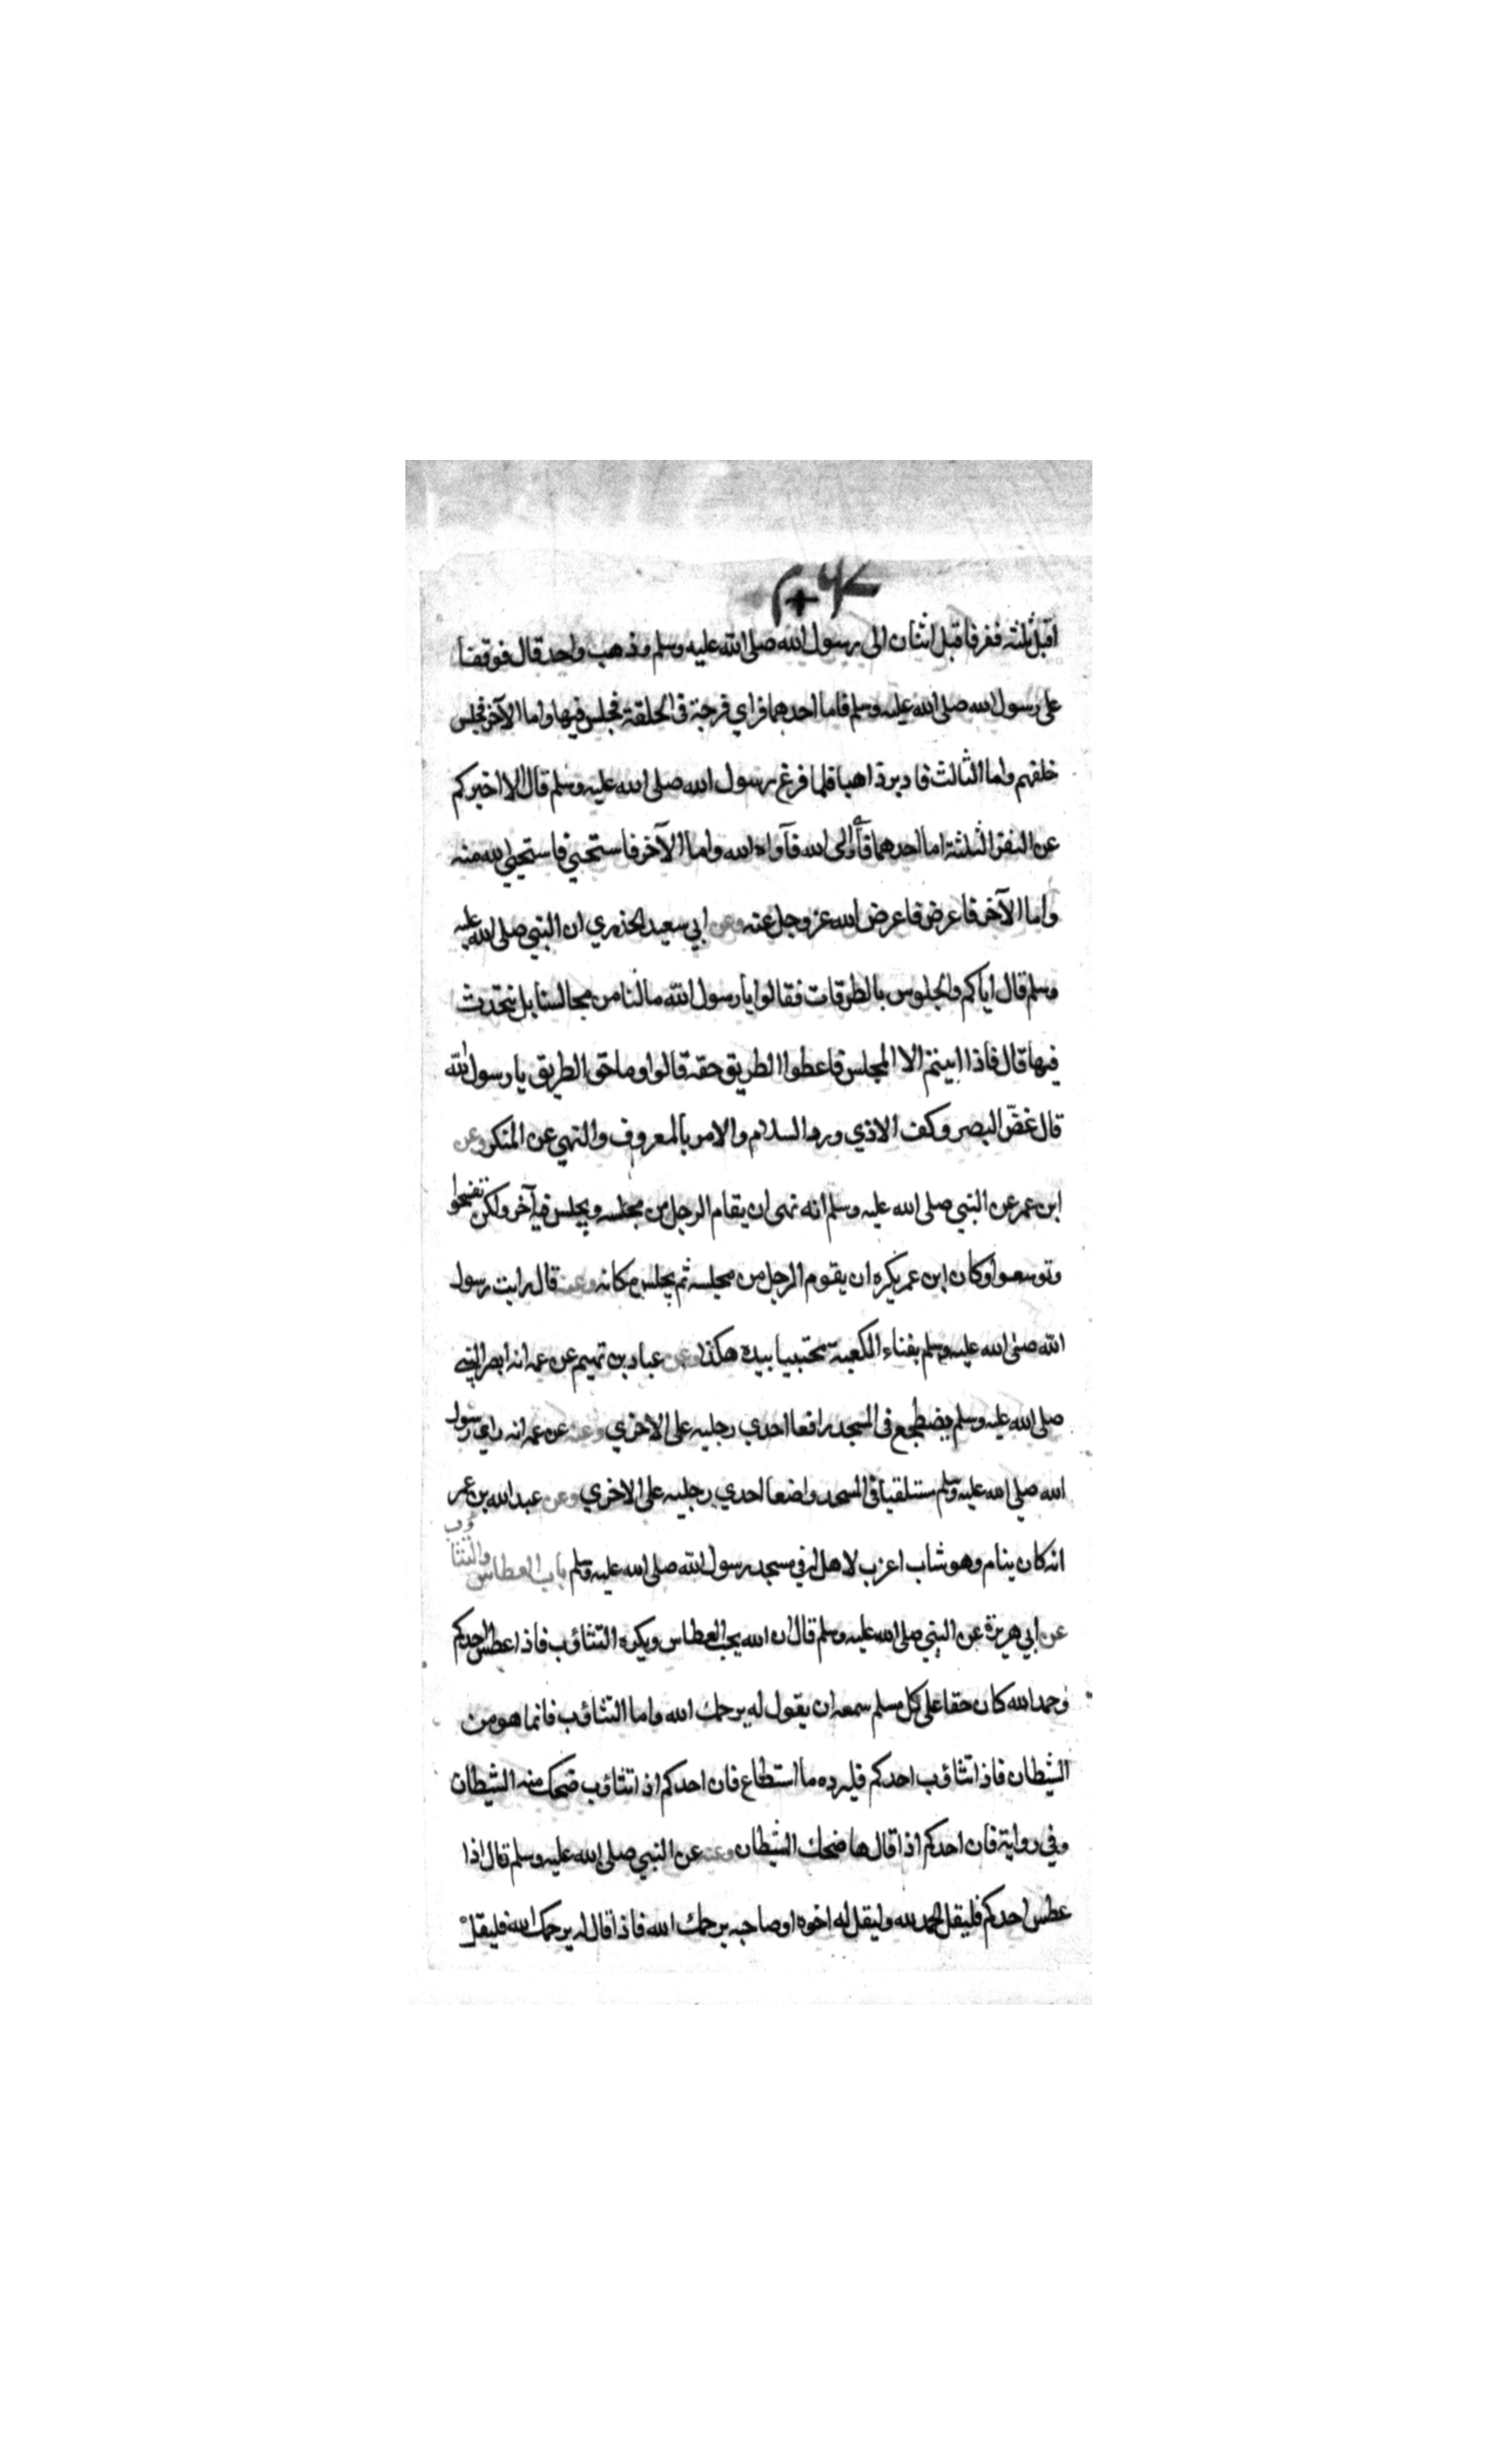 اقبل ثلثة نفر فاقبل اثنان الى رسول الله صلى الله عليه وسلم وذهب واحد قال فوقفا
على رسول الله صلى الله عليه وسلم فاما احدهما فراي فرجة في الحلقة فجلس فيها واما الآخر فجلس
خلفهم واما الثالث فادبر ذاهبا فلما فرغ رسول الله صلى الله عليه وسلم قال الا اخبركم
عن النفر الثلثة اما احدهما فأوى الى الله فآواه الله واما الآخر فاستحيى فاستحيى الله منه
واما الآخر فاعرض فاعرض الله عز وجل عنه وعن ابي سعيد الخدري ان النبي صلى الله عليه
وسلم قال اياكم والجلوس بالطرقات فقالوا يا رسول الله مالنا من مجالسنا بل نتحدث
فيها قال فاذا ابيتم الا المجلس فاعطوا الطريق حقه قالوا وما حق الطريق يا رسول الله
قال غضّ البصر وكف الاذي ورد السلام والامر بالمعروف والنهي عن المنكر وعن
ابن عمر عن النبي صلى الله عليه وسلم انه نهى ان يقام الرجل من مجلسه ويجلس فيه آخر ولكن تفسحوا
وتوسعوا وكان ابن عمر يكره ان يقوم الرجل من مجلسه ثم يجلس مكانه وعنه قال رايت رسول
الله صلى الله عليه وسلم بفناء الكعبة محتبيا بيده هكذا وعن عباد بن تميم عن عمه انه ابصر النبي
صلى الله عليه وسلم يضطجع في المسجد رافعا احدي رجليه على الاخري وعنه عن عمه انه راي رسول
الله صلى الله عليه وسلم مستلقيا في المسجد واضعا احدي رجليه على الاخري وعن عبد الله بن عمر
انه كان ينام وهو شاب اعزب لا اهل له في مسجد رسول الله صلى الله عليه وسلم باب العطاس والتثاؤب
عن ابي هريرة عن النبي صلى الله عليه وسلم قال ان الله يحب العطاس ويكره التثاؤب فاذا عطس احدكم
وحمد الله كان حقا على كل مسلم سمعه ان يقول له يرحمك الله واما التثاؤب فانما هو من
الشيطان فاذا تثاؤب احدكم فليرده ما استطاع فان احدكم اذا تثاؤب ضحك منه الشيطان
وفي رواية فان احدكم اذا قال ها ضحك الشيطان وعنه عن النبي صلى الله عليه وسلم قال اذا
عطس احدكم فليقل الحمد لله وليقل له اخوه او صاحبه يرحمك الله فاذا قال له يرحمك الله فليقل